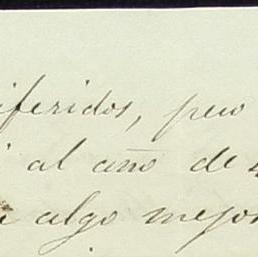 iferidos, pero
al año de
algo mejor